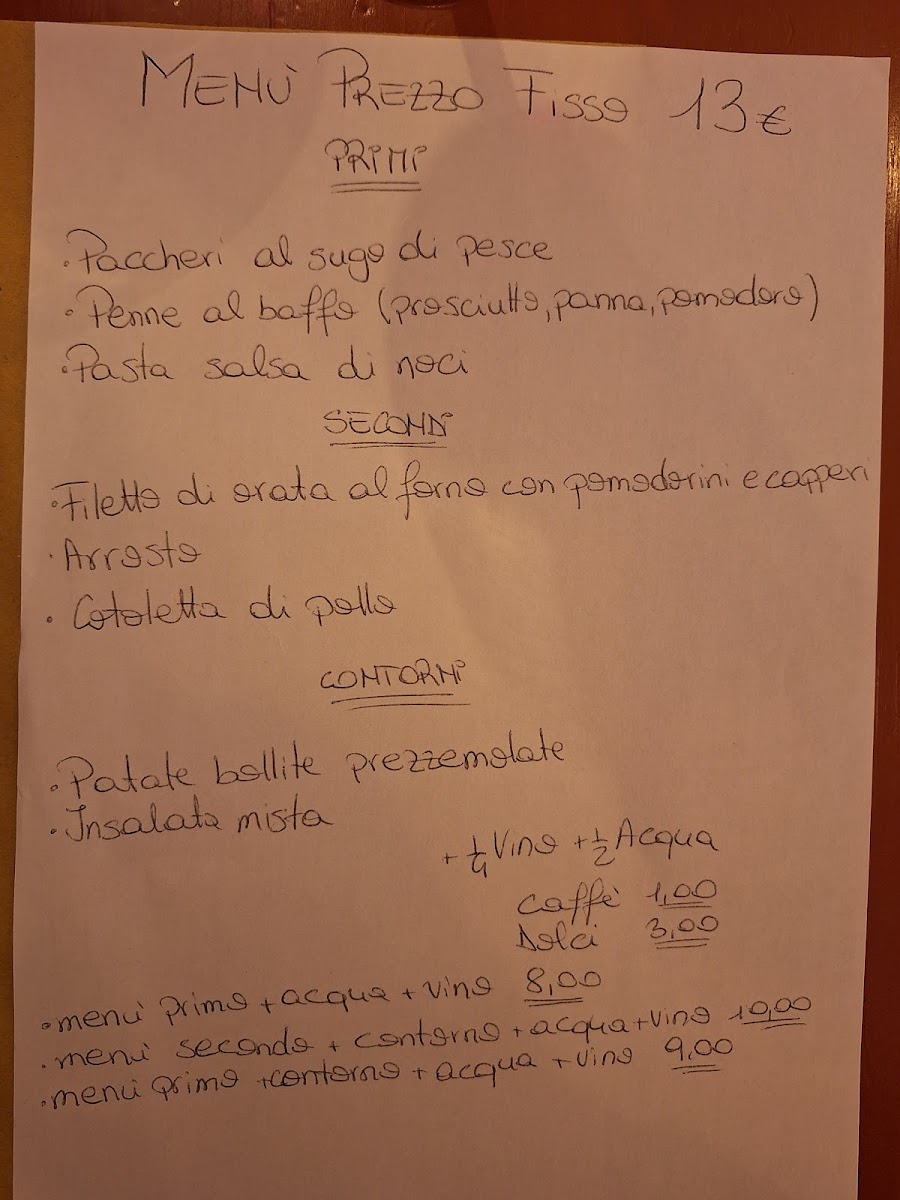 MENÙ PREZZO FISSO 13€
PRIMI
·Paccheri al sugo di pesce
·Penne al baffo (prosciutto, panna, pomodoro)
·Pasta salsa di noci
SECONDI
·Filetto di orata al forno con pomodorini e capperi
·Arrosto
·Cotoletta di pollo
CONTORNI
·Patate bollite prezzemolate
·Insalata mista
+ 1/4 Vino + 1/2 Acqua
Caffè 1,00
Dolci 3,00
·menù primo + acqua + vino 8,00
·menù secondo + contorno + acqua + vino 10,00
·menù primo + contorno + acqua + vino 9,00